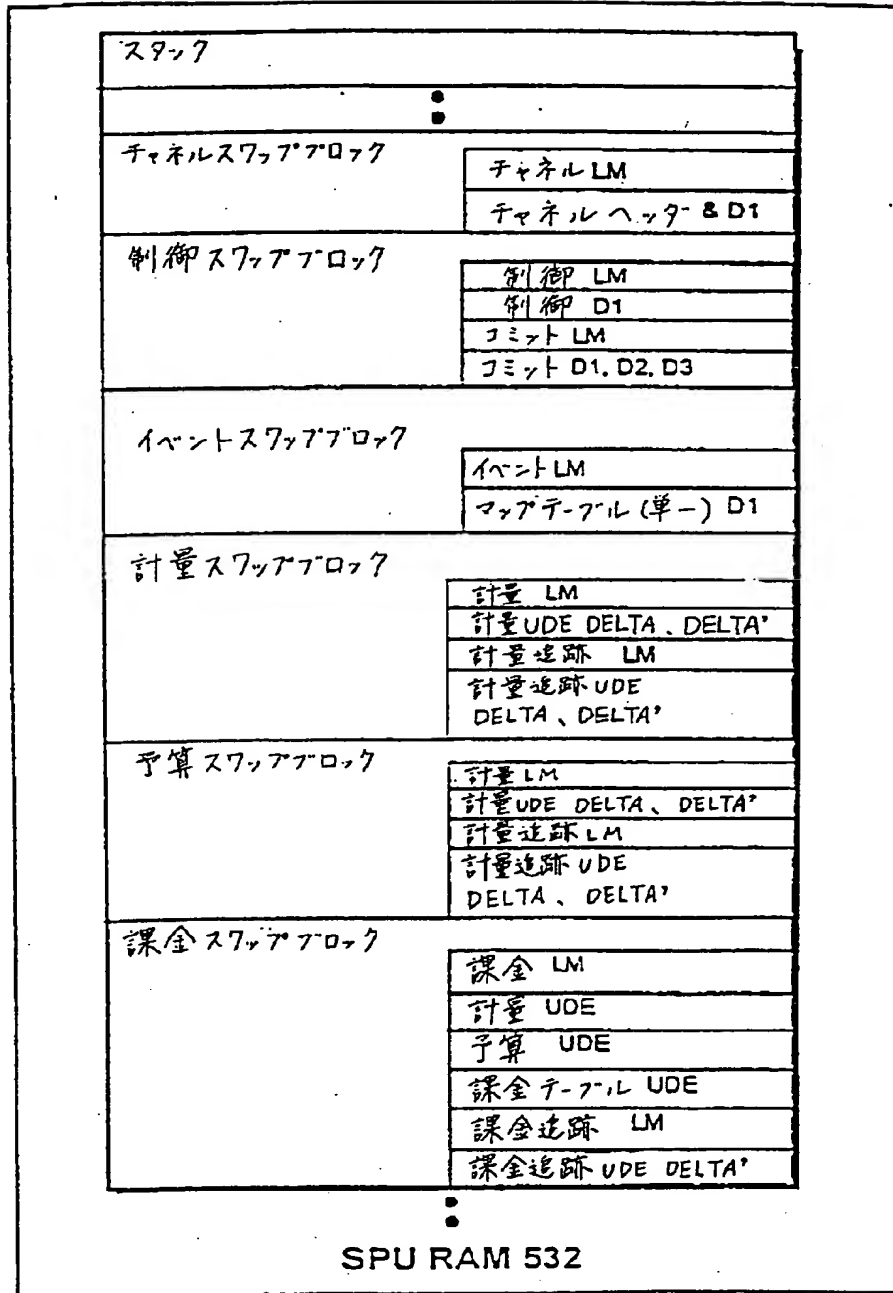 スタック
チャネルスワップブロック
チャネル LM
チャネルヘッダー & D1
制御スワップブロック
制御 LM
制御 D1
コミット LM
コミット D1. D2. D3
イベントスワップブロック
イベント LM
マップテーブル (単一) D1
計量スワップブロック
計量 LM
計量UDE DELTA、DELTA'
計量追跡 LM
計量追跡 UDE
DELTA、DELTA'
予算スワップブロック
計量 LM
計量UDE DELTA、DELTA'
計量追跡 LM
計量追跡 UDE
DELTA、DELTA'
課金スワップブロック
課金 LM
計量 UDE
予算 UDE
課金テーブル UDE
課金追跡 LM
課金追跡 UDE DELTA'
SPU RAM 532